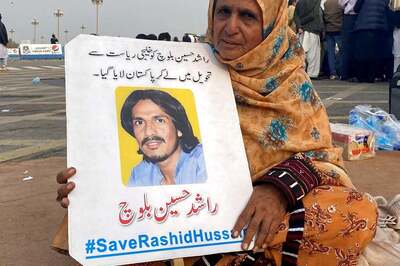 راشد حسین بلوچ کو خلیجی ریاست سے
تحویل میں لے کر پاکستان لایا گیا۔
راشد حسین بلوچ
#SaveRashidHuss